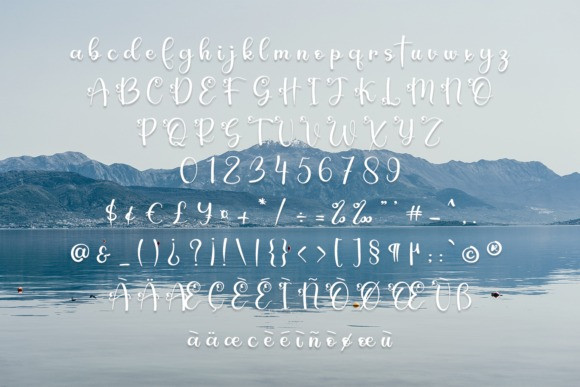 abcdefghijklmnopqrstuvwxyz
ABCDEFGHIJKLMNO
PQRSTUVWXYZ
0123456789
$¢€£¥¤+*/÷=%‰"'#-^..
@&_()¿?¡!\|{}<>[]§¶µ::`©®
ÀÄÆÇÈÉÌÑÒØŒÙß
àäæcèéìñòøœù